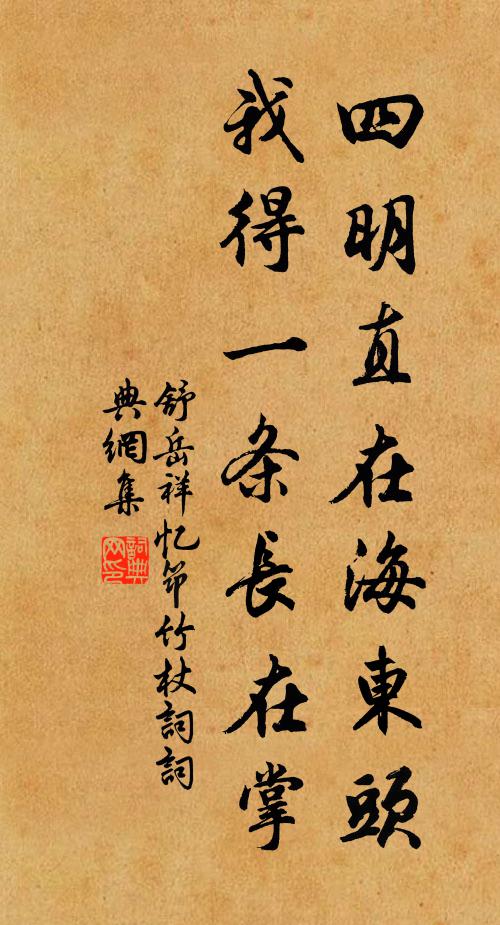 四明直在海東頭
我得一条長在掌
舒岳祥忆笻竹杖詞詞
典網集
詞典
网印